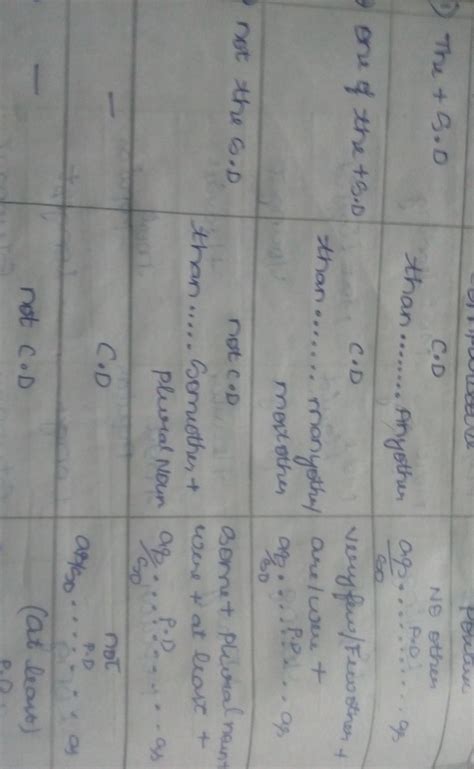 Comparative
Positive
1) The + S.D
C.D
than ........ Any other
No other
P.D
as/so ........ as
one of the + S.D
C.D
than ....... many other/
most other
very few/Few other +
are/were +
P.D
as/so ....... as
not the S.D
not C.D
than ..... Some other +
plural Noun
some + plural noun +
were + at least +
P.D
as/so ........ as
—
C.D
not
P.D
as/so ........ as
—
not C.D
(at least)
P.D